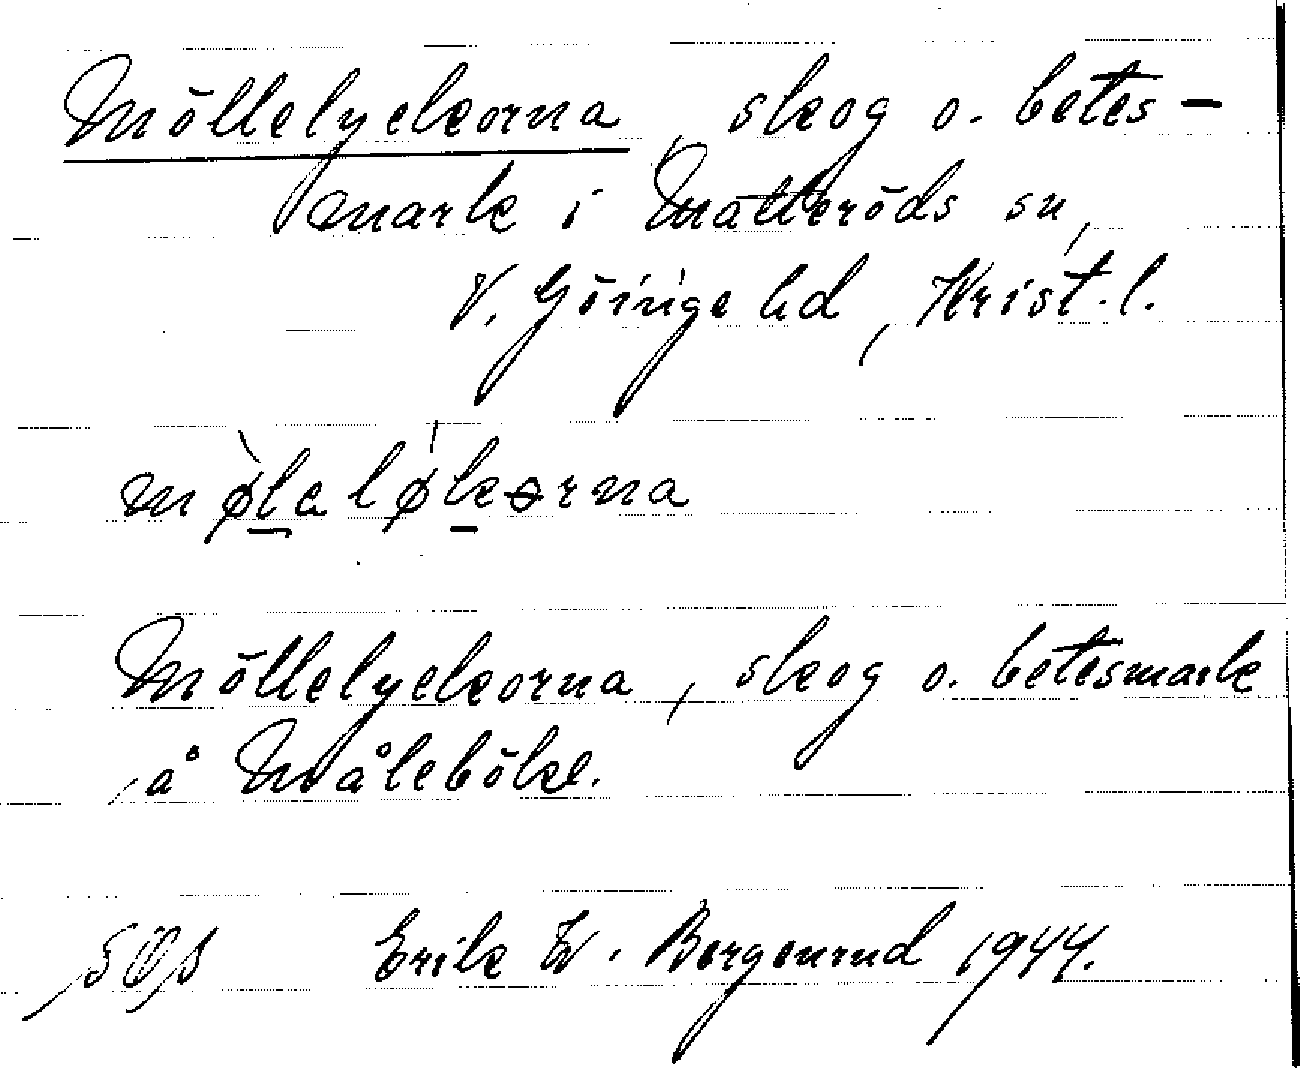 Möllelyckorna, skog o. betes-
mark i Matteröds sn,
V. Göinge hd, Krist. l.
mø̀laløkərna
Möllelyckorna, skog o. betesmark
å Måleböke.
Erik W. Borgenrud 1944.